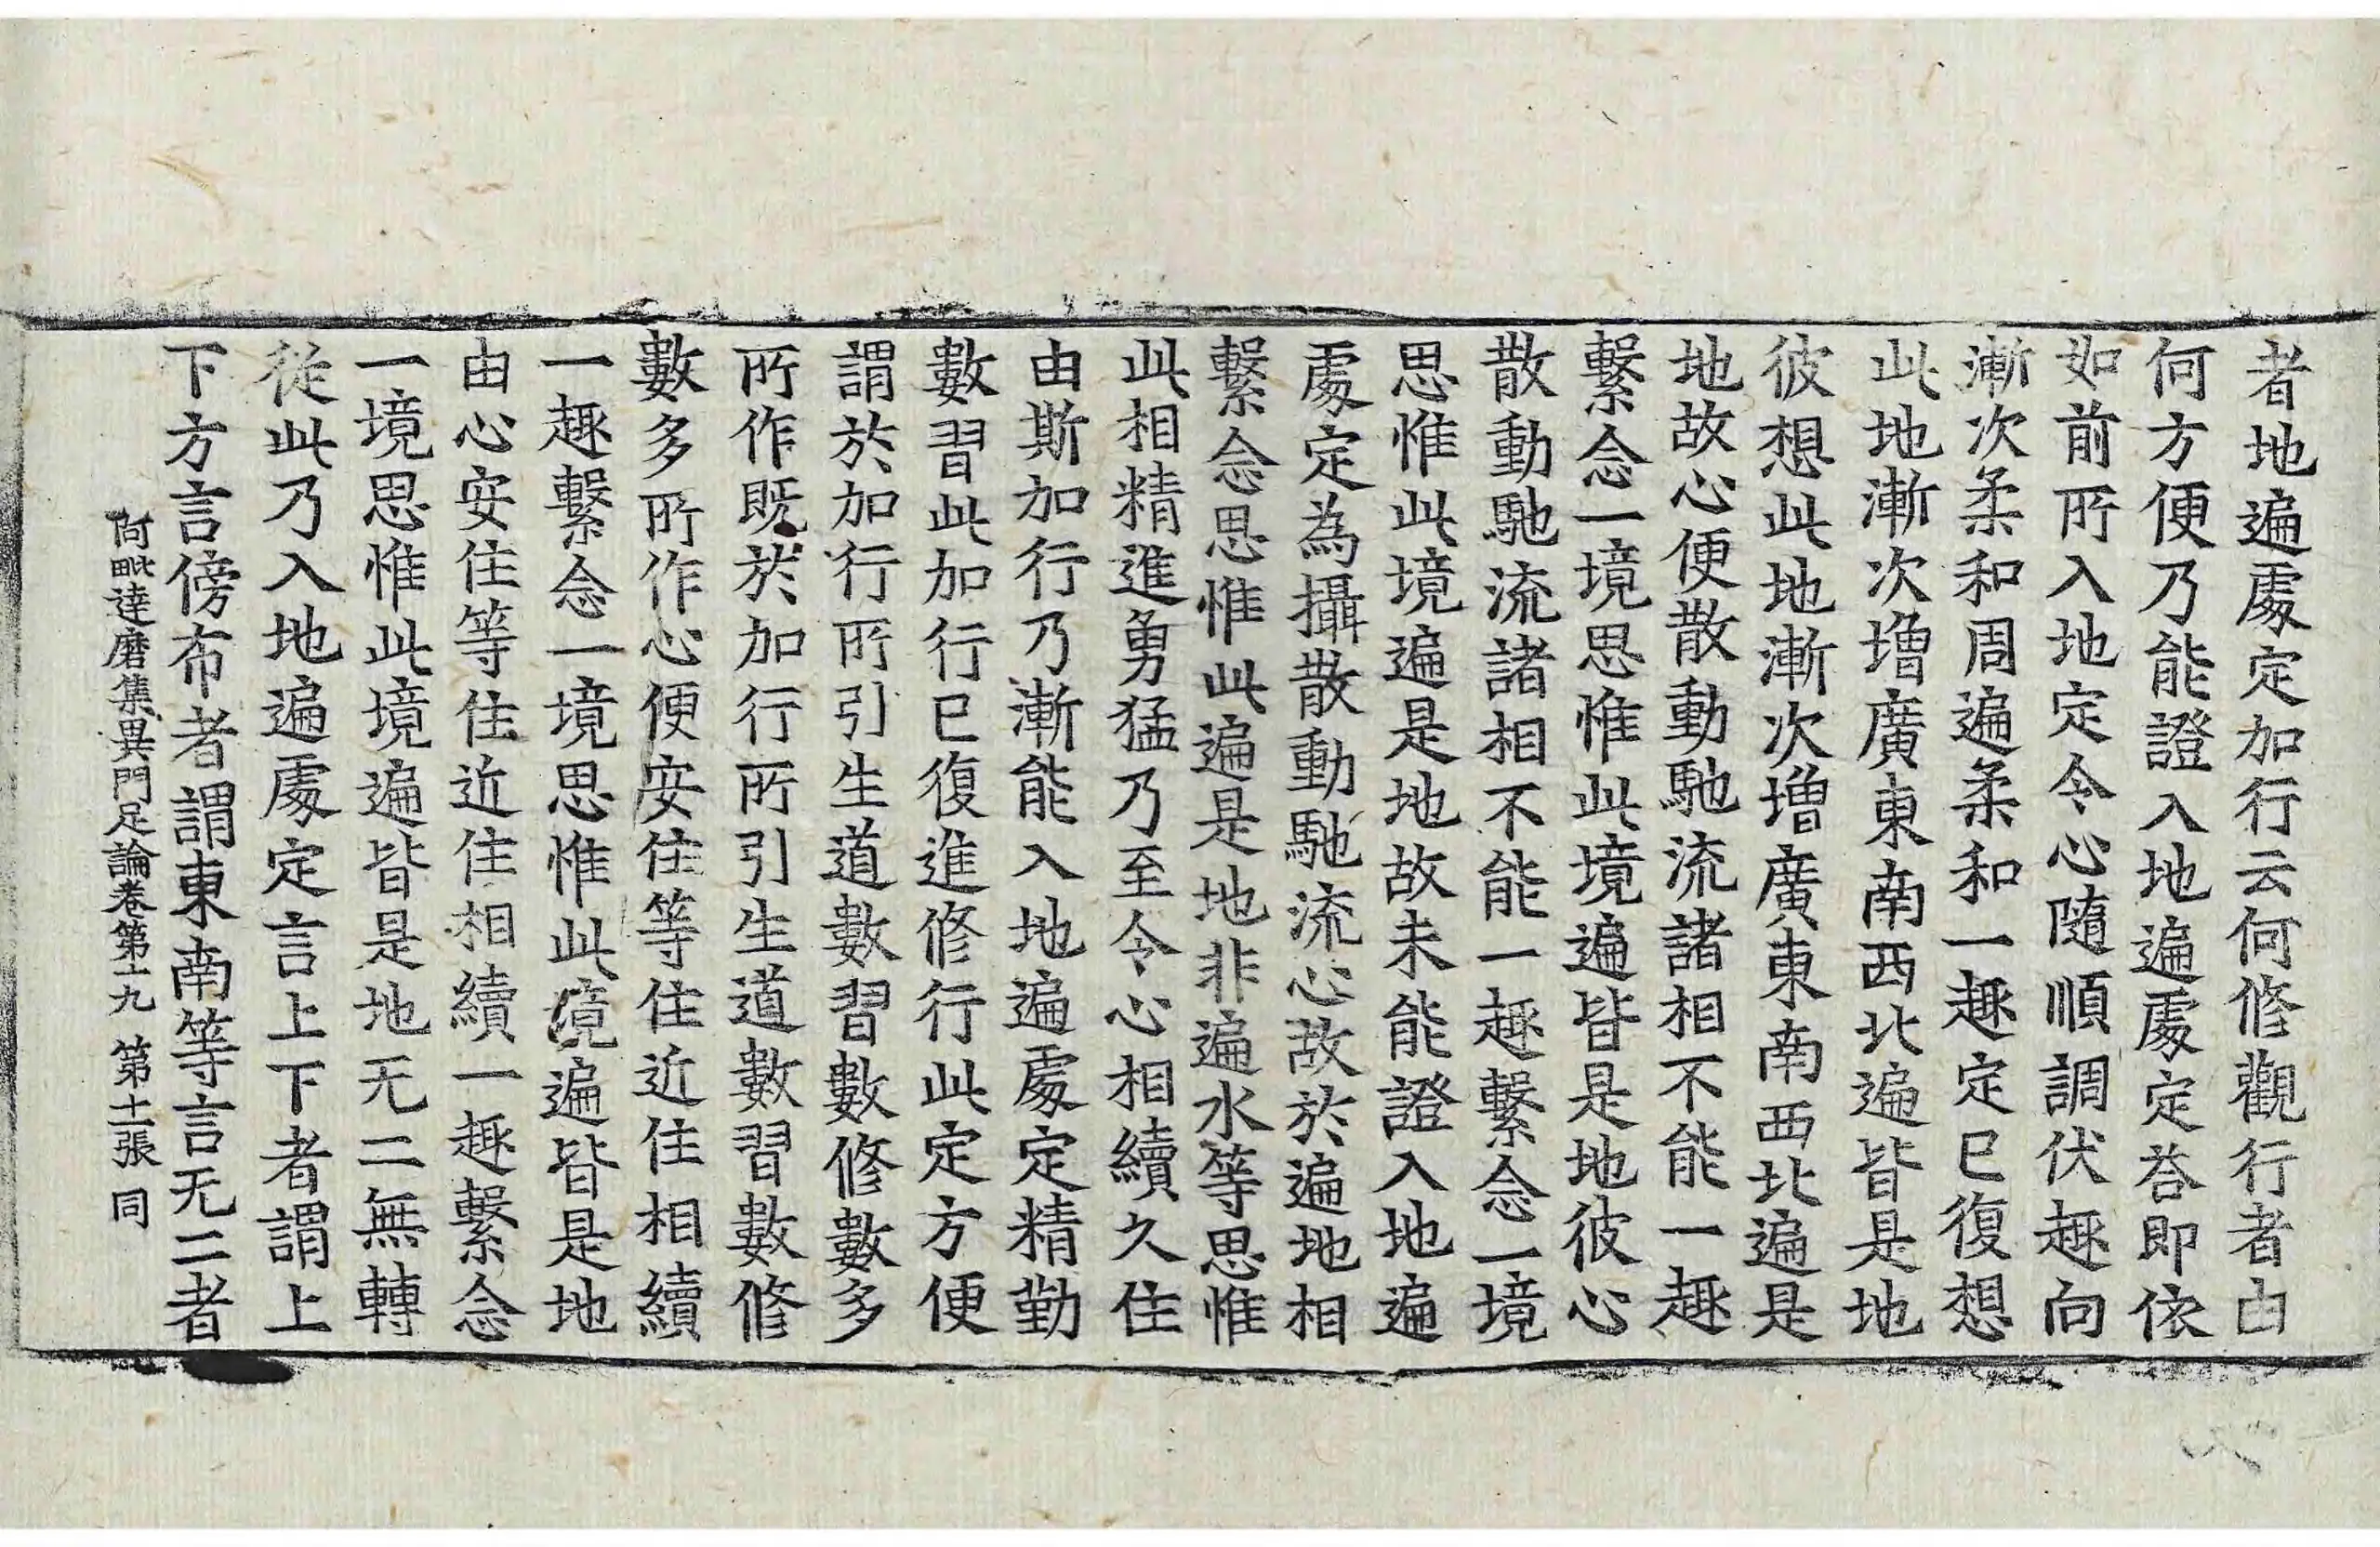 者地遍處定加行云何修觀行者由
何方便乃能證入地遍處定荅即依
如前所入地定令心隨順調伏趣向
漸次柔和周遍柔和一趣定已復想
此地漸次增廣東南西北遍皆是地
彼想此地漸次增廣東南西北遍是
地故心便散動馳流諸相不能一趣
繫念一境思惟此境遍皆是地彼心
散動馳流諸相不能一趣繫念一境
思惟此境遍是地故未能證入地遍
處定為攝散動馳流心故於遍地相
繫念思惟此遍是地非遍水等思惟
此相精進勇猛乃至令心相續久住
由斯加行乃漸能入地遍處定精勤
數習此加行已復進修行此定方便
謂於加行所引生道數習數修數多
所作既於加行所引生道數習數修
數多所作心便安住等住近住相續
一趣繫念一境思惟此境遍皆是地
由心安住等住近住相續一趣繫念
一境思惟此境遍皆是地无二無轉
從此乃入地遍處定言上下者謂上
下方言傍布者謂東南等言无二者
阿毗達磨集異門足論卷第十九 第十二張 同